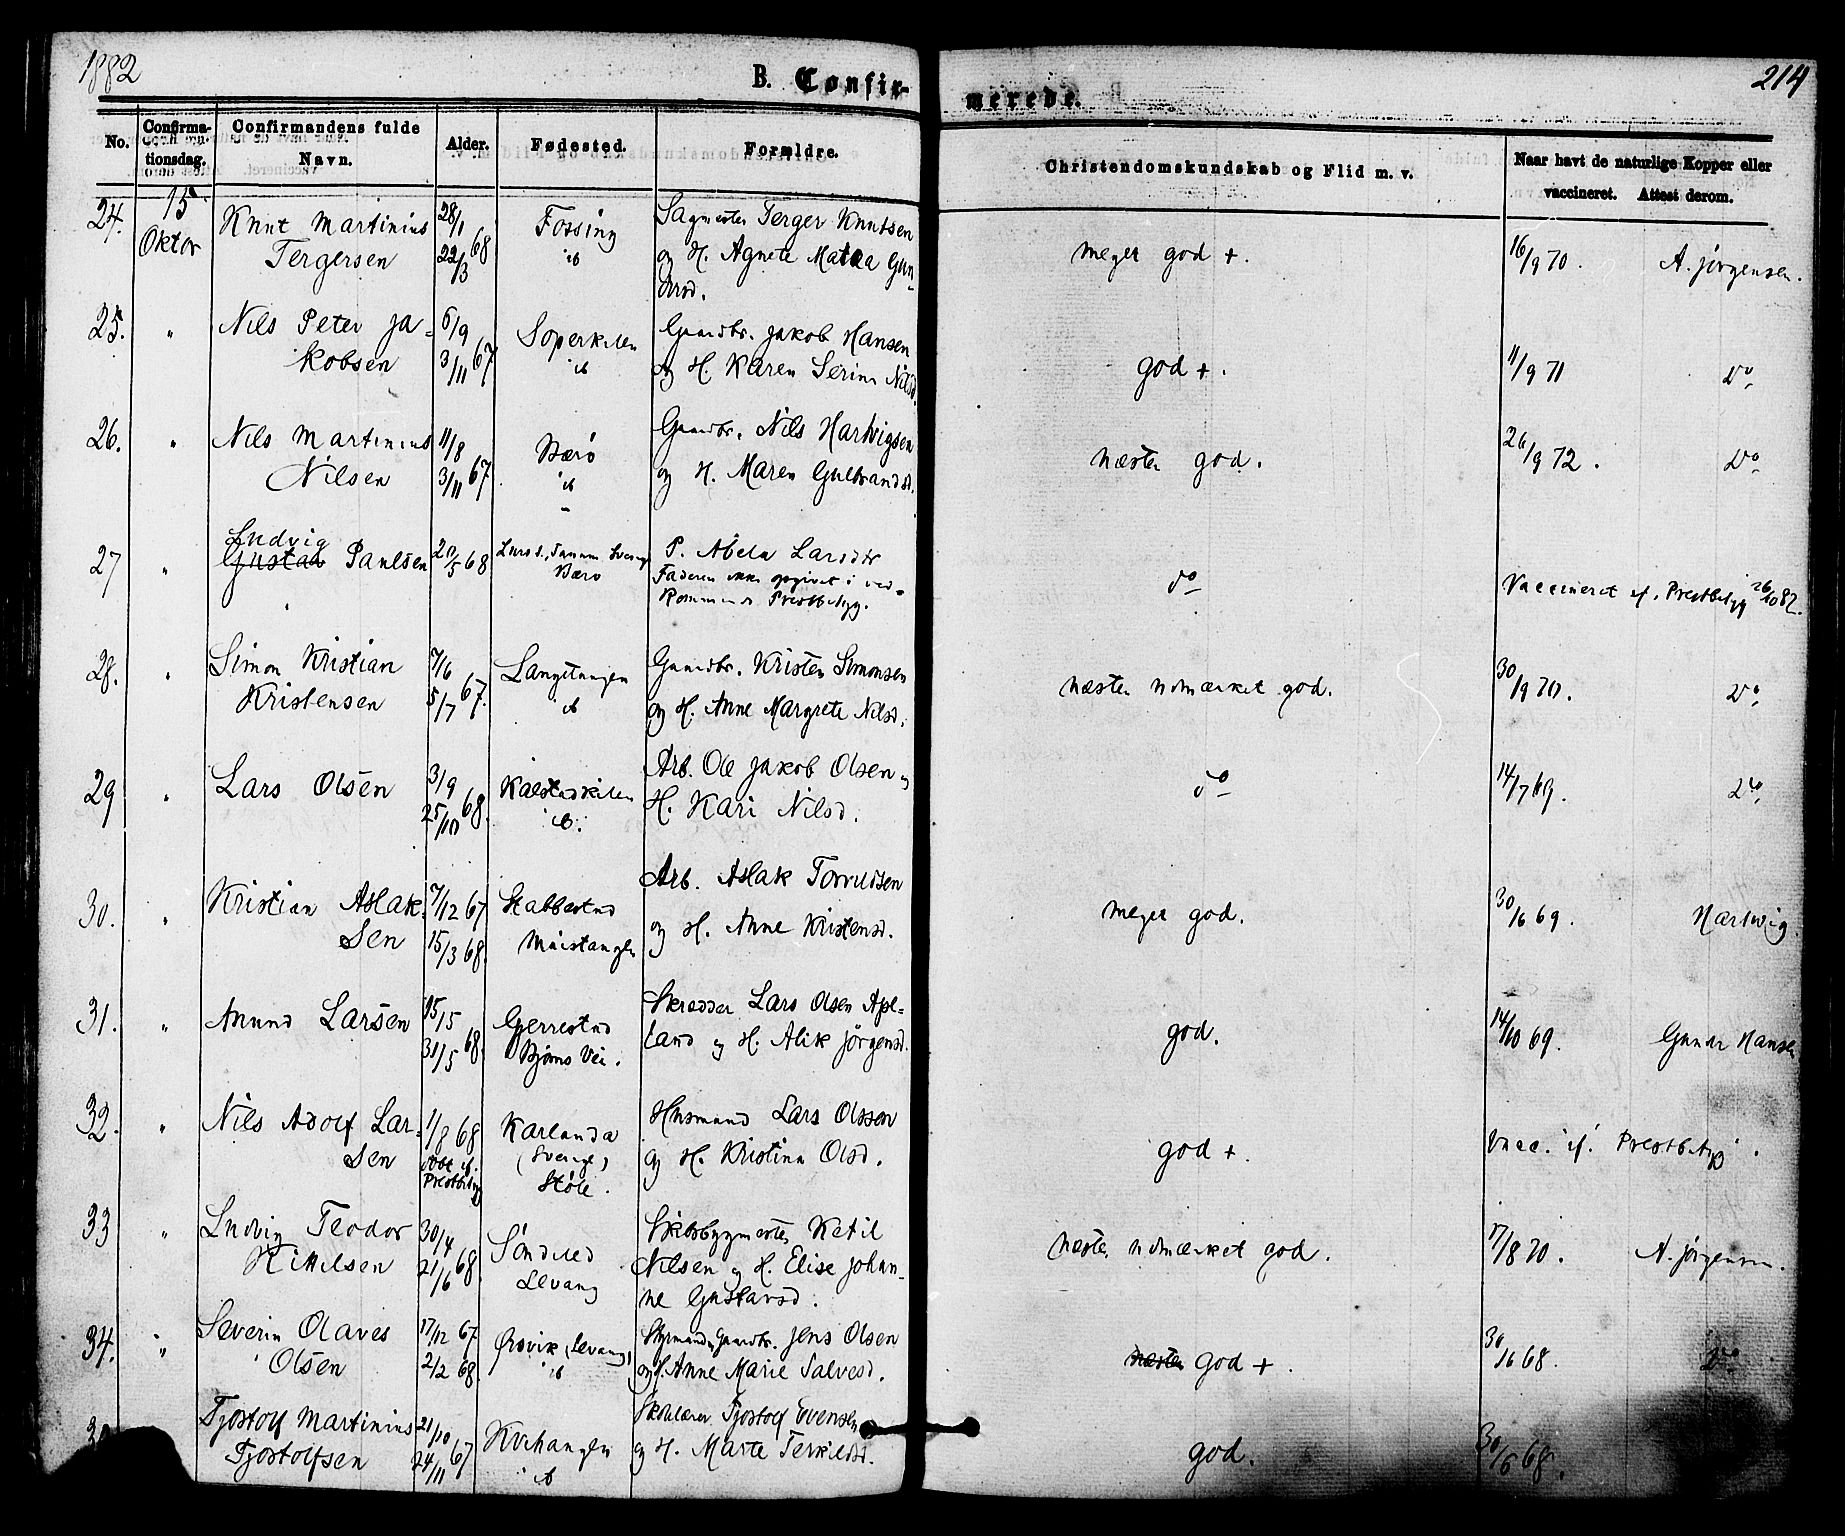 1882
B. Confir-
merede.
214
No.
Confirma-
tionsdag.
Confirmandens fulde
Navn.
Alder.
Fødested.
Forældre.
Christendomskundskab og Flid m. v.
Naar havt de naturlige Kopper eller
vaccineret. Attest derom.
24. 15 Knut Martinius 28/1 Fossing Sagmester Terger Knutsen
Oktor Tergersen 22/3 68 ib og H. Agnete Gun-
dersd.
meget god +. 16/9 70. A. Jörgensen.
25. " Nils Peter Ja- 6/9 Soperkilen Gaardbr. Jakob Hansen
kobsen 3/11 67 ib og H. Karen Serine Nilsd.
god +. 11/9 71 do
26. " Nils Martinius 11/8 Bærö Gaardbr. Nils Hartvigsen
Nilsen 3/11 67 ib og H. Maren Gulbrandsd.
næsten god. 26/9 72. do
27 " Ludvig
Gustav Paulsen 20/5 68 Tanum Sverige P. Abela Larsdtr
Bærö Faderen ikke opgivet i ved-
kommende Prestbetyg.
do Vaccineret if. Prestbetyg 26/10 82.
28. " Simon Kristian 7/6 Langtangen Gaardbr. Kristen Simonsen
Kristensen 5/7 67. ib og H. Anne Margrete Nilsd.
næsten udmærket god. 30/9 70. do
29 " Lars Olsen 3/9 Kalstadkilen Arb. Ole Jakob Olsen og
25/10 68. ib. H. Kari Nilsd.
do 14/7 69. do
30. " Kristian Aslak- 7/12 67 Stabbestad Arb. Aslak Torvildsen
sen 15/3 68. og H. Anne Kristensd.
meget god. 30/6 69. Hartwig.
31. " Anund Larsen 15/5 Gjerrestad Skrædder Lars Olsen Apl-
31/5 68. Bjorns Vei. land og H. Alik Jörgensd.
god. 14/10 69. Gunde Hansen
32. " Nils Adolf Lar- 1/8 68 Karlanda Husmand Lars Olsson
sen döbt if. (Sverige) og H. Kristina Olsd.
Prestbetyg Støle.
god +. Vacc. if. Prestbetyg.
33 " Ludvig Teodor 30/4 Söndeled Skibsbygmester Ketil
Kittilsen 21/6 68. Levang Nilsen og H. Elise Johan-
ne Gustavsd.
næsten udmærket god. 17/8 70. A. Jörgensen.
34. " Severin Olaves 17/12 67 Ørsvik (Levang) Styrmand, Gaardbr. Jens Olsen
Olsen 2/2 68. ib og H. Anne Marie Salvesd.
næsten god +. 30/6 68. do
Tjostolf Martinius 21/10 Kvihangen Skolelærer Tjostolf Evensen
Tjostolfsen 24/11 67 ib og H. Marte Terkildsd.
god. 30/6 68.